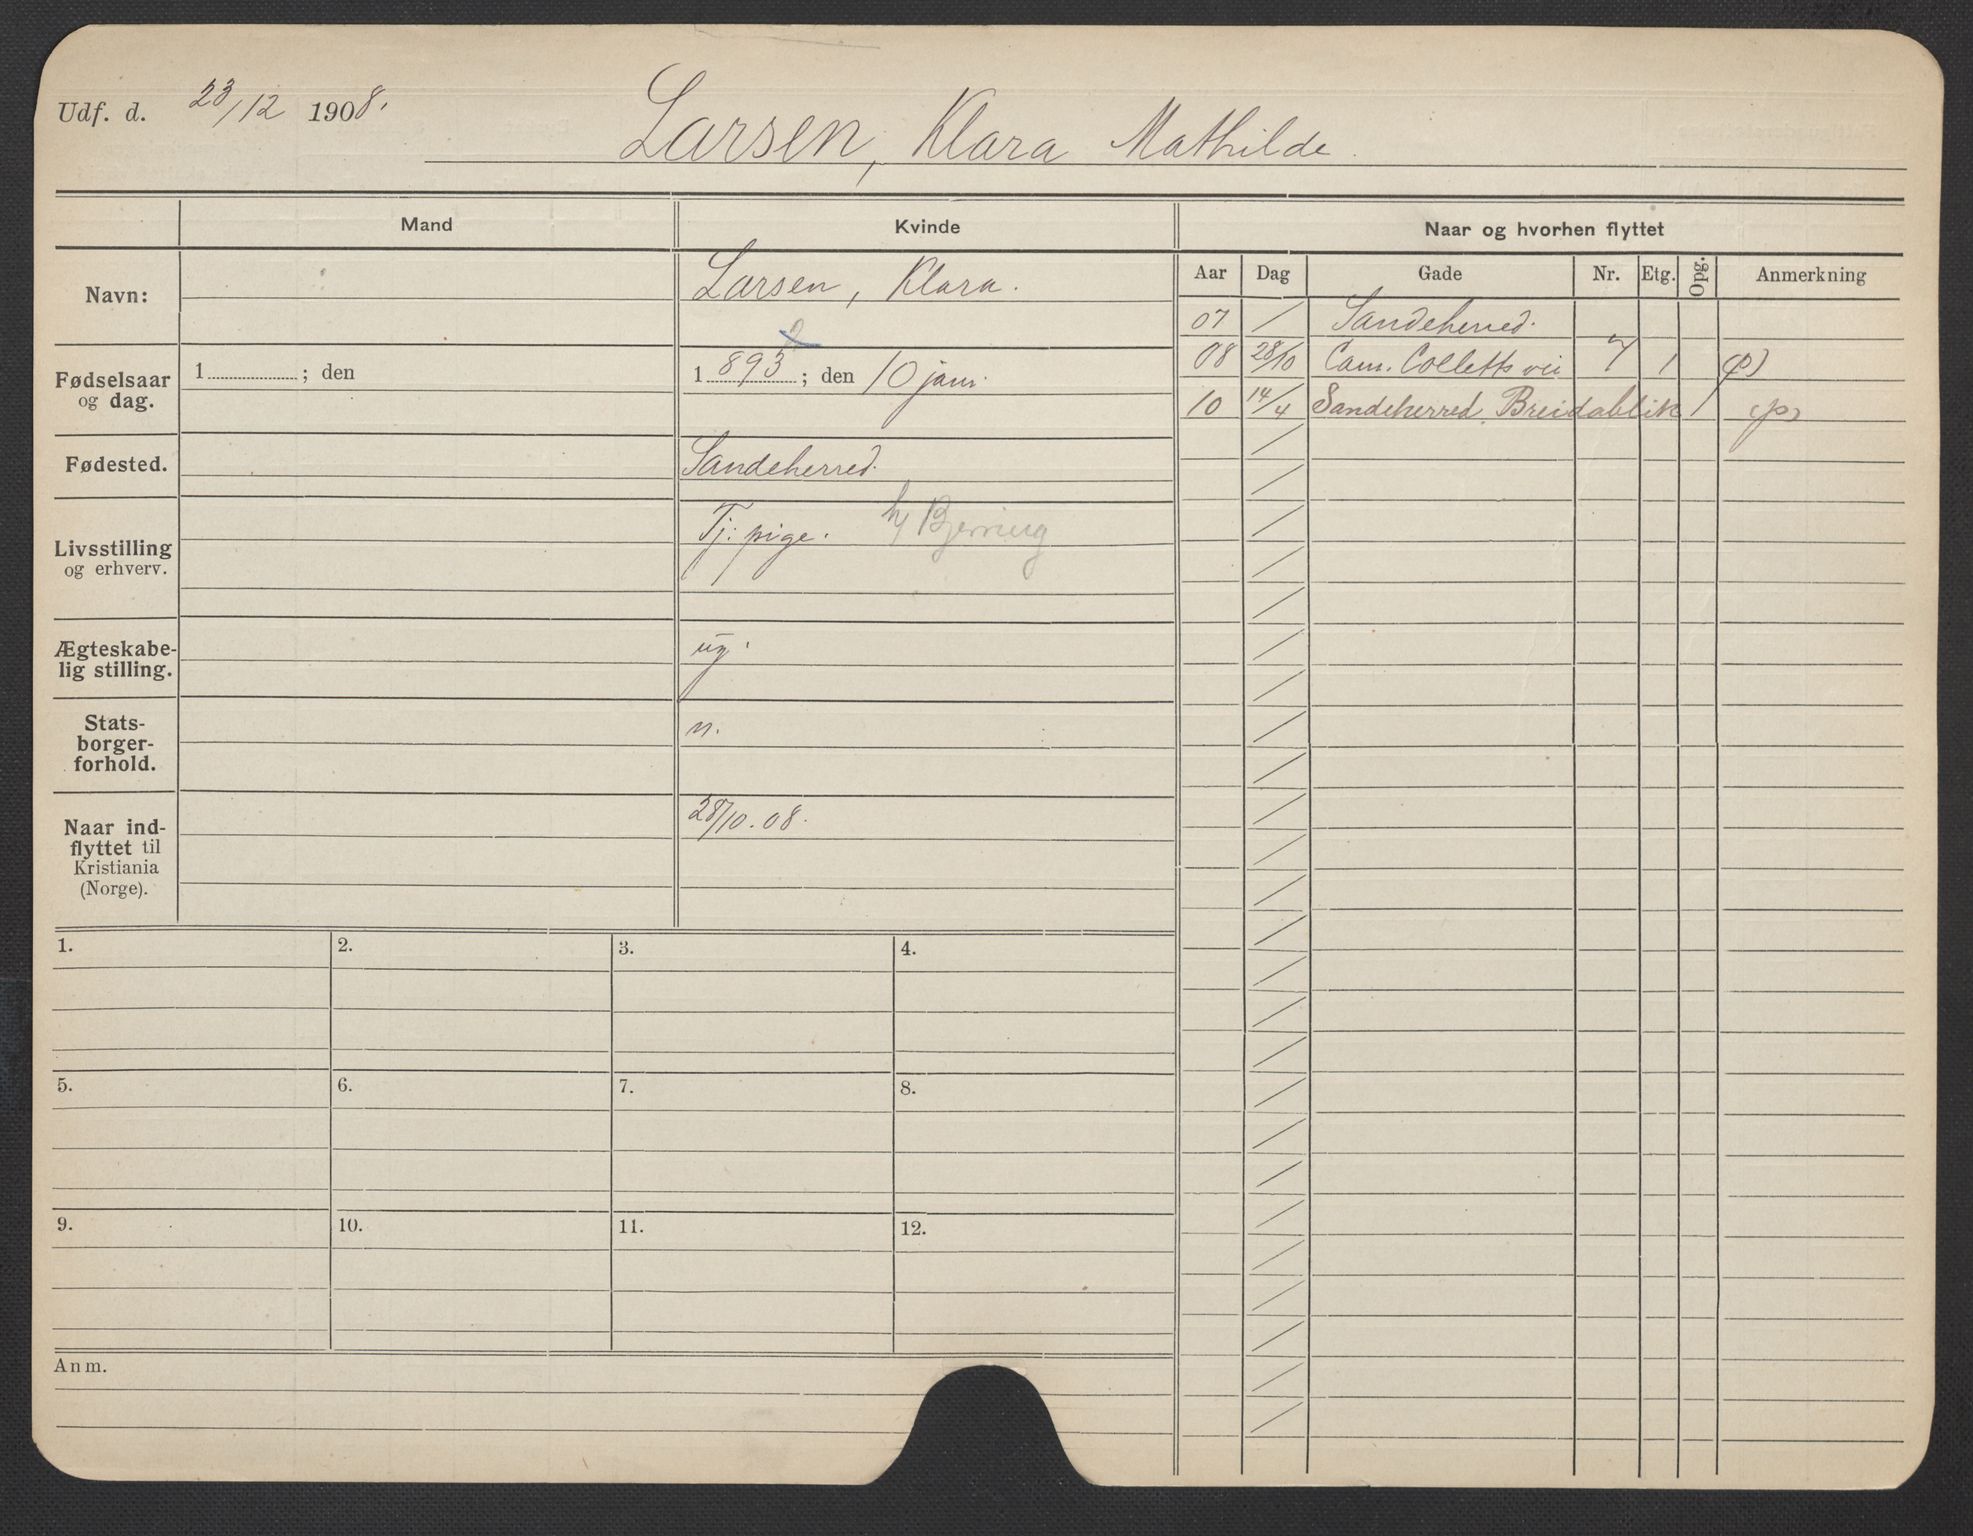 Udf. d. 23/12 1908.
Larsen, Klara Mathilde
Mand
Kvinde
Naar og hvorhen flyttet
Aar Dag Gade Nr. Etg. Opg. Anmerkning
Navn:
Larsen, Klara.
07 / Sandeherred.
08 28/10 Cam. Colletts vei 7 1 (p)
10 14/4 Sandeherred, Breidablik 1 (p)
Fødselsaar
og dag.
1 ; den
1 893 ; den 10 jan.
2
Fødested.
Sandeherred.
Livsstilling
og erhverv.
Tj: pige. h/ Bjerring
Ægteskabe-
lig stilling.
ug.
Stats-
borger-
forhold.
n.
Naar ind-
flyttet til
Kristiania
(Norge).
28/10.08.
1. 2. 3. 4.
5. 6. 7. 8.
9. 10. 11. 12.
Anm.